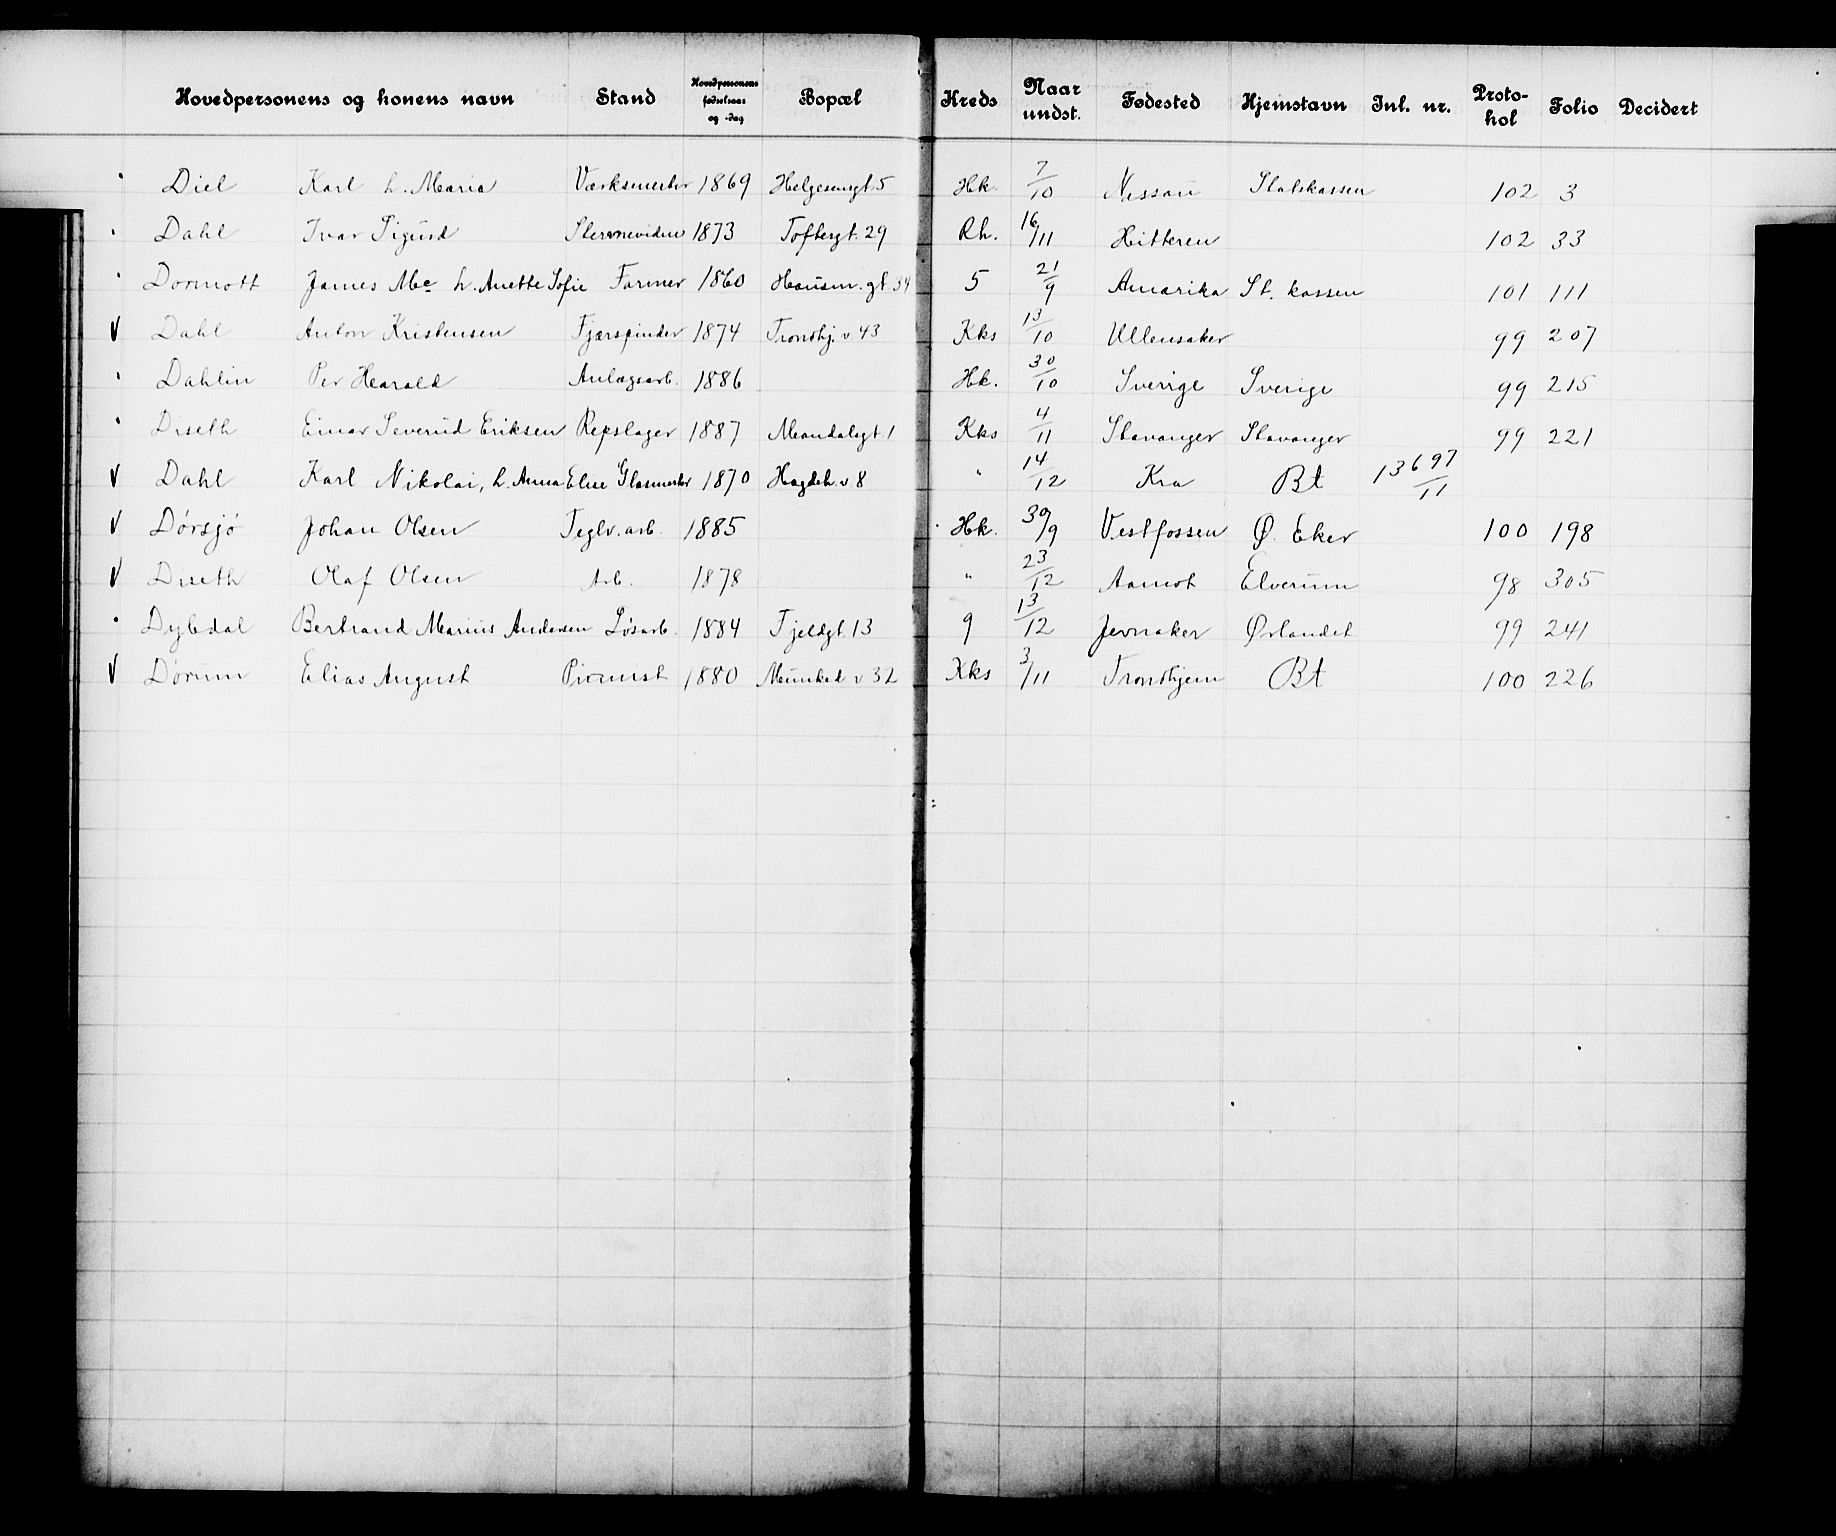 Hovedpersonens og konens navn Stand Hovedpersonens fødselsaar og -dag Bopæl Kreds Naar undst. Fødested Hjemstavn Inl. nr. Proto-kol Folio Decidert
Diel Karl h. Maria Værksmester 1869 Helgesensgt. 5 Hk. 7/10 Nassau Statskassen 102 3
Dahl Ivar Sigurd 1873 Toftesgt. 29 Rh. 16/11 Hitteren 102 33
Dormott James Mc h. Anette Sofie Farmer 1860 Hausm. gt 34 5 21/9 Amerika St. kassen 101 111
V Dahl Anton Kristensen Fjærspinder 1874 Trondhj. v 43 Kks 13/10 Ullensaker 99 207
Dahlin Per Harald Anlægsarb. 1886 Hk. 30/10 Sverige Sverige 99 215
Diseth Einar Severud Eriksen Repslager 1887 Mandalsgt. 1 Kks 4/11 Stavanger Stavanger 99 221
V Dahl Karl Nikolai, h. Anna Elise Glasmester 1870 Hagdeh. v. 8 " 14/12 Kra Bt 13697/11
V Dørsjø Johan Olsen Teglv. arb. 1885 Hk. 30/9 Vestfossen Ø. Eker 100 198
V Diseth Olaf Olsen Arb. 1878 " 23/12 Aamot Elverum 98 305
Dybdal Bertrand Marius Andersen Løsarb. 1884 Fjeldgt. 13 9 13/12 Jevnaker Ørlandet 99 241
V Dørum Elias August Pianist 1880 Munked v 32 Kks 3/11 Trondhjem Bt 100 226